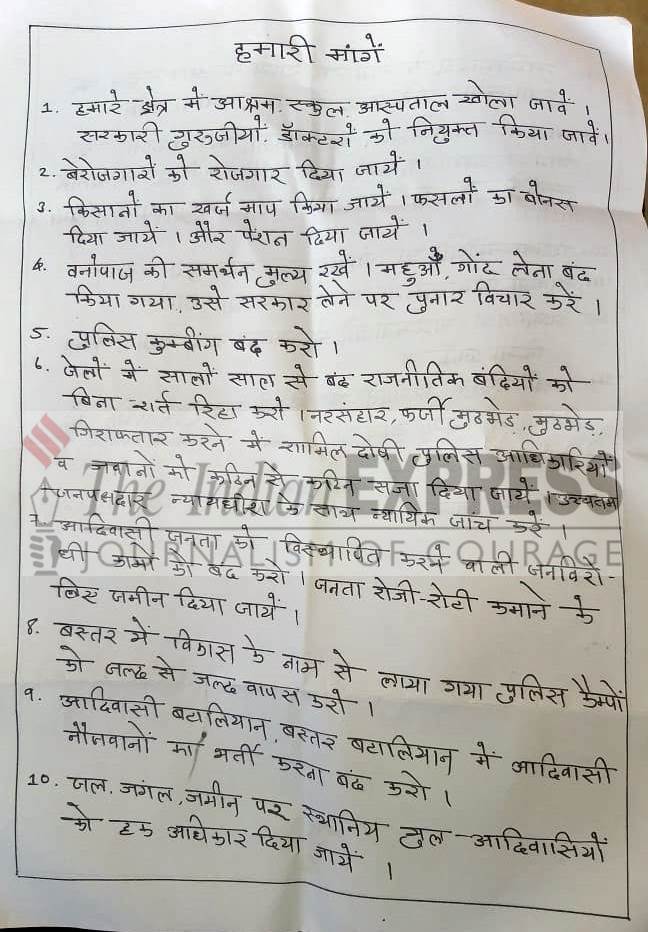 हमारी मांगें
1. हमारे क्षेत्र में आश्रम, स्कुल, आस्पताल खोला जावें ।
सरकारी गुरुजीयों, डॉक्टरों को नियुक्त किया जावें।
2. बेरोजगारों को रोजगार दिया जायें ।
3. किसानों का खर्ज माप किया जायें । फसलों का बोनस
दिया जायें । और पेंशन दिया जायें ।
4. वनोपाज की समर्थन मुल्य रखें । महुआँ, गोंद लेना बंद
किया गया, उसे सरकार लेने पर पुनार विचार करें ।
5. पुलिस कुम्बींग बंद करो ।
6. जेलों में सालों साल से बंद राजनीतिक बंदियों को
बिना शर्त रिहा करो । नरसंहार, फर्जी मुठभेड, मुठभेड,
गिराफतार करने में शामिल दोषी पुलिस आधिकारियों
व जवानों को कठिन से कठिन सजा दिया जायें । उच्चतम
जनपक्षदार न्यायधीश के साथ न्यायिक जांच करें ।
7. आदिवासी जनता को विस्थापित करने वाली जनविरो-
धी कामों को बंद करो । जनता रोजी-रोटी कमाने के
लिए जमीन दिया जायें ।
8. बस्तर में विकास के नाम से लाया गया पुलिस कैम्पों
को जल्द से जल्द वापस करो ।
9. आदिवासी बटालियान, बस्तर बटालियान में आदिवासी
नौजवानों का भर्ती करना बंद करो ।
10. जल, जगंल, जमीन पर स्थानिय आदिवासियों
को हक आधिकार दिया जायें ।
The Indian EXPRESS
JOURNALISM OF COURAGE